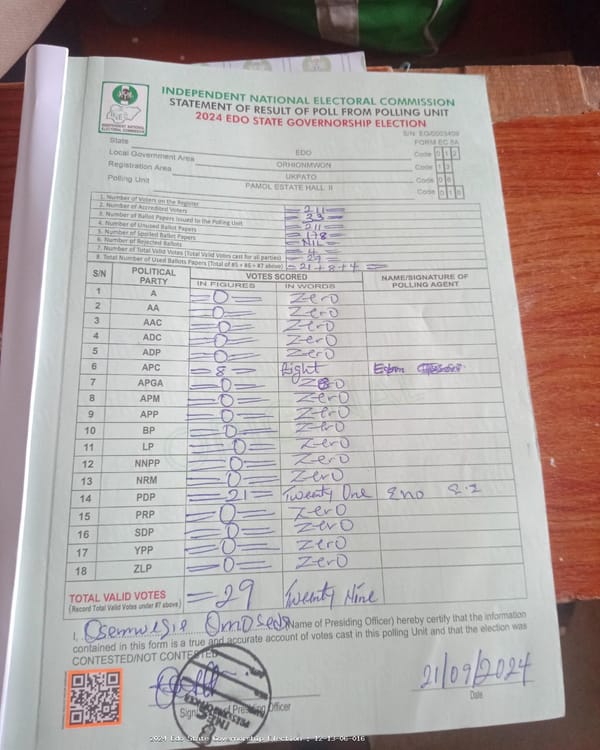 INDEPENDENT NATIONAL ELECTORAL COMMISSION
STATEMENT OF RESULT OF POLL FROM POLLING UNIT
2024 EDO STATE GOVERNORSHIP ELECTION
FORM EC 8A
State EDO Code 0 1 2
Local Government Area ORHIONMWON Code
Registration Area UKPATO Code 0 6
Polling Unit PAMOL ESTATE HALL II Code 0 1 6
1. Number of Voters on the Register = 211 =
2. Number of Accredited Voters = 33 =
3. Number of Ballot Papers Issued to the Polling Unit = 211 =
4. Number of Unused Ballot Papers = 178 =
5. Number of Spoiled Ballot Papers = NIL =
6. Number of Rejected Ballots = 4 =
7. Number of Total Valid Votes (Total Valid Votes cast for all parties) = 29 =
8. Total Number of Used Ballots Papers (Total of #5 + #6 + #7 above) = 21 + 8 + 4 =
S/N POLITICAL PARTY VOTES SCORED NAME/SIGNATURE OF POLLING AGENT
IN FIGURES IN WORDS
1 A =0= Zero
2 AA =0= Zero
3 AAC =0= Zero
4 ADC =0= Zero
5 ADP =0= Zero
6 APC =8= Eight
7 APGA =0= Zero
8 APM =0= Zero
9 APP =0= Zero
10 BP =0= Zero
11 LP =0= Zero
12 NNPP =0= Zero
13 NRM =0= Zero
14 PDP =21= Twenty One Eno
15 PRP =0= Zero
16 SDP =0= Zero
17 YPP =0= Zero
18 ZLP =0= Zero
TOTAL VALID VOTES =29 Twenty Nine
(Record Total Valid Votes under #7 above)
I, Osemwegie (Name of Presiding Officer) hereby certify that the information
contained in this form is a true and accurate account of votes cast in this polling Unit and that the election was
CONTESTED/NOT CONTESTED
21/09/2024
Date
2024 Edo State Governorship Election : 12-13-06-016